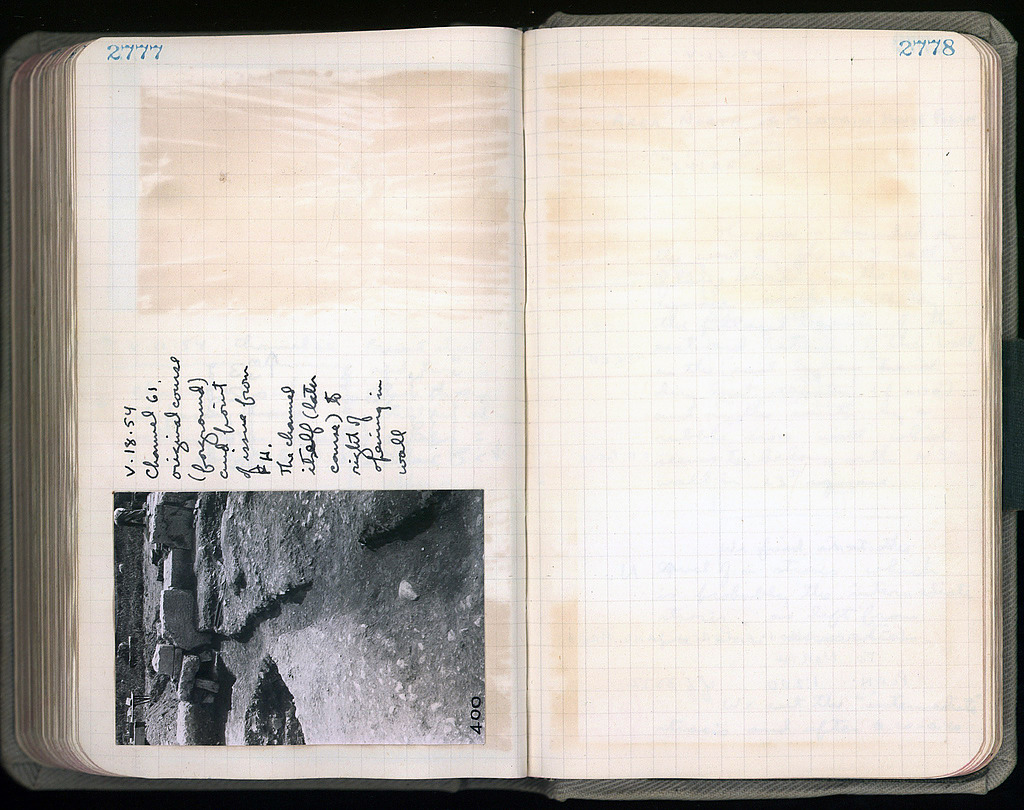 2777
2778
V.18.54
Channel 61.
original course
(foreground)
and point
of issue from
The channel
itself (later
course) to
right of
opening in
wall
400